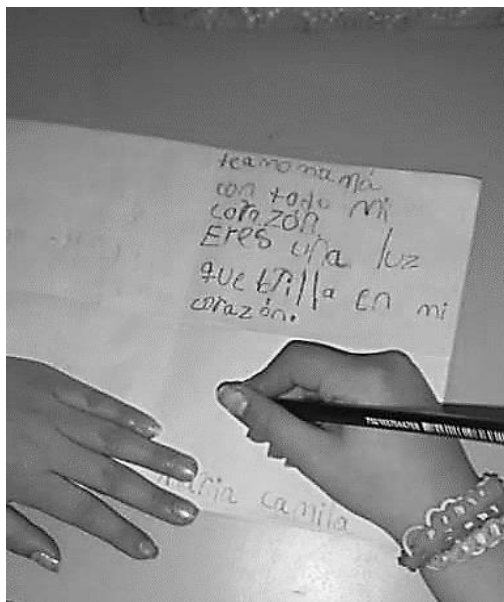 teamo mamá
con todo mi
corazón.
Eres una luz
que brilla en mi
corazón.
Maria camila